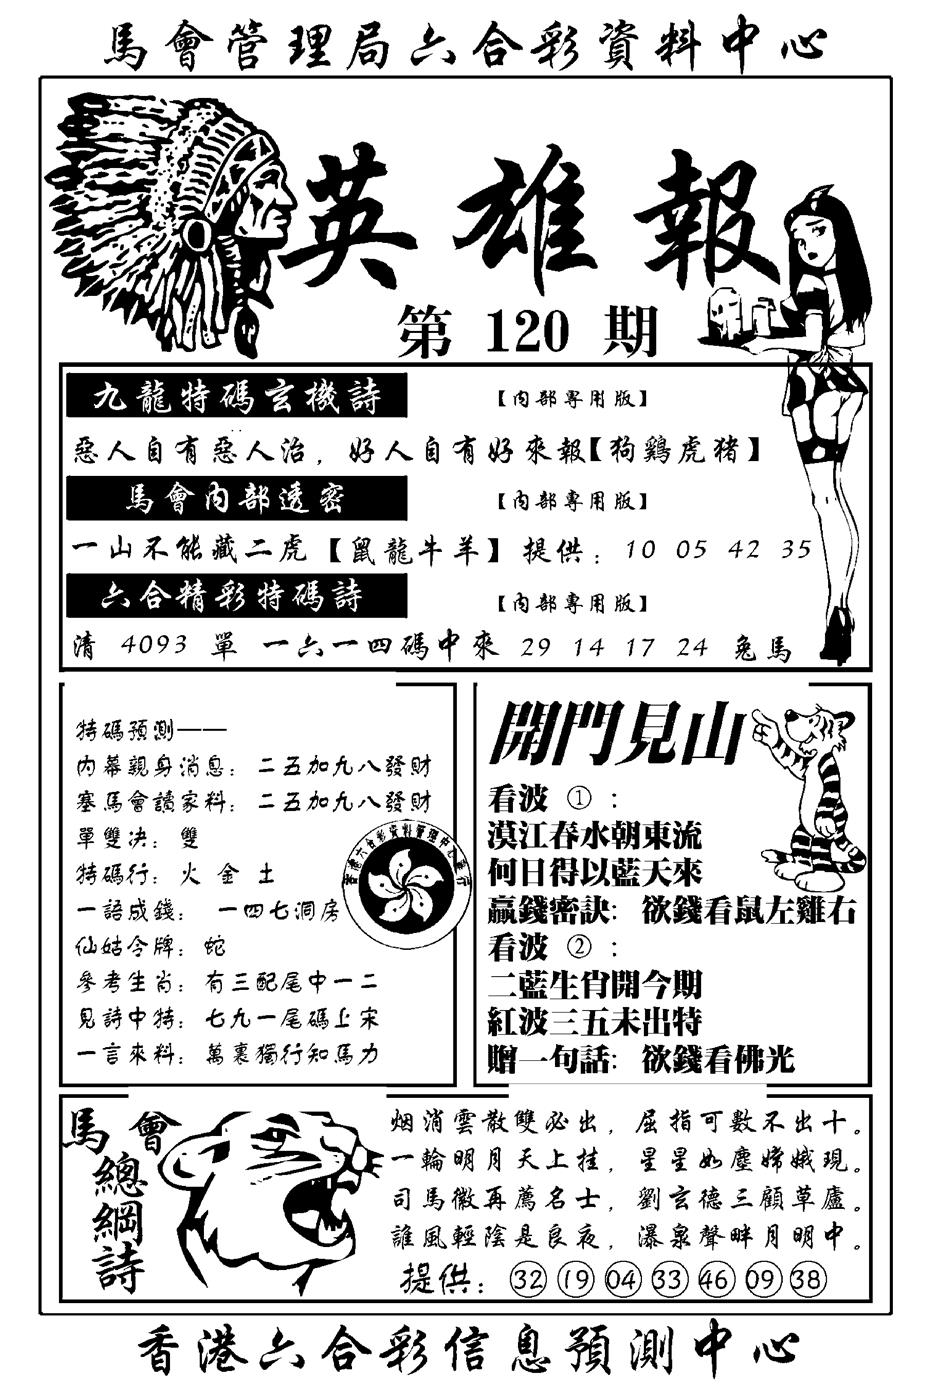 馬會管理局六合彩資料中心
英雄報
第 120 期
九龍特碼玄機詩
【內部專用版】
惡人自有惡人治，好人自有好來報【狗鷄虎猪】
馬會內部透密
【內部專用版】
一山不能藏二虎【鼠龍牛羊】提供：10 05 42 35
六合精彩特碼詩
【內部專用版】
清 4093 單 一六一四碼中來 29 14 17 24 兔馬
特碼預測——
內幕親身消息：二五加九八發財
塞馬會讀家料：二五加九八發財
單雙決：雙
特碼行：火 金 土
一語成錢： 一四七洞房
仙姑令牌：蛇
參考生肖：有三配尾中一二
見詩中特：七九一尾碼上宋
一言來料：萬裏獨行知馬力
香港六合彩資料管理中心發行
開門見山
看波 ①：
漠江春水朝東流
何日得以藍天來
贏錢密訣：欲錢看鼠左雞右
看波 ②：
二藍生肖開今期
紅波三五未出特
贈一句話：欲錢看佛光
馬會
總綱詩
烟消雲散雙必出，屈指可數不出十。
一輪明月天上挂，星星如塵嫦娥現。
司馬徽再薦名士，劉玄德三顧草廬。
誰風輕陰是良夜，瀑泉聲畔月明中。
提供：32 19 04 33 46 09 38
香港六合彩信息預測中心